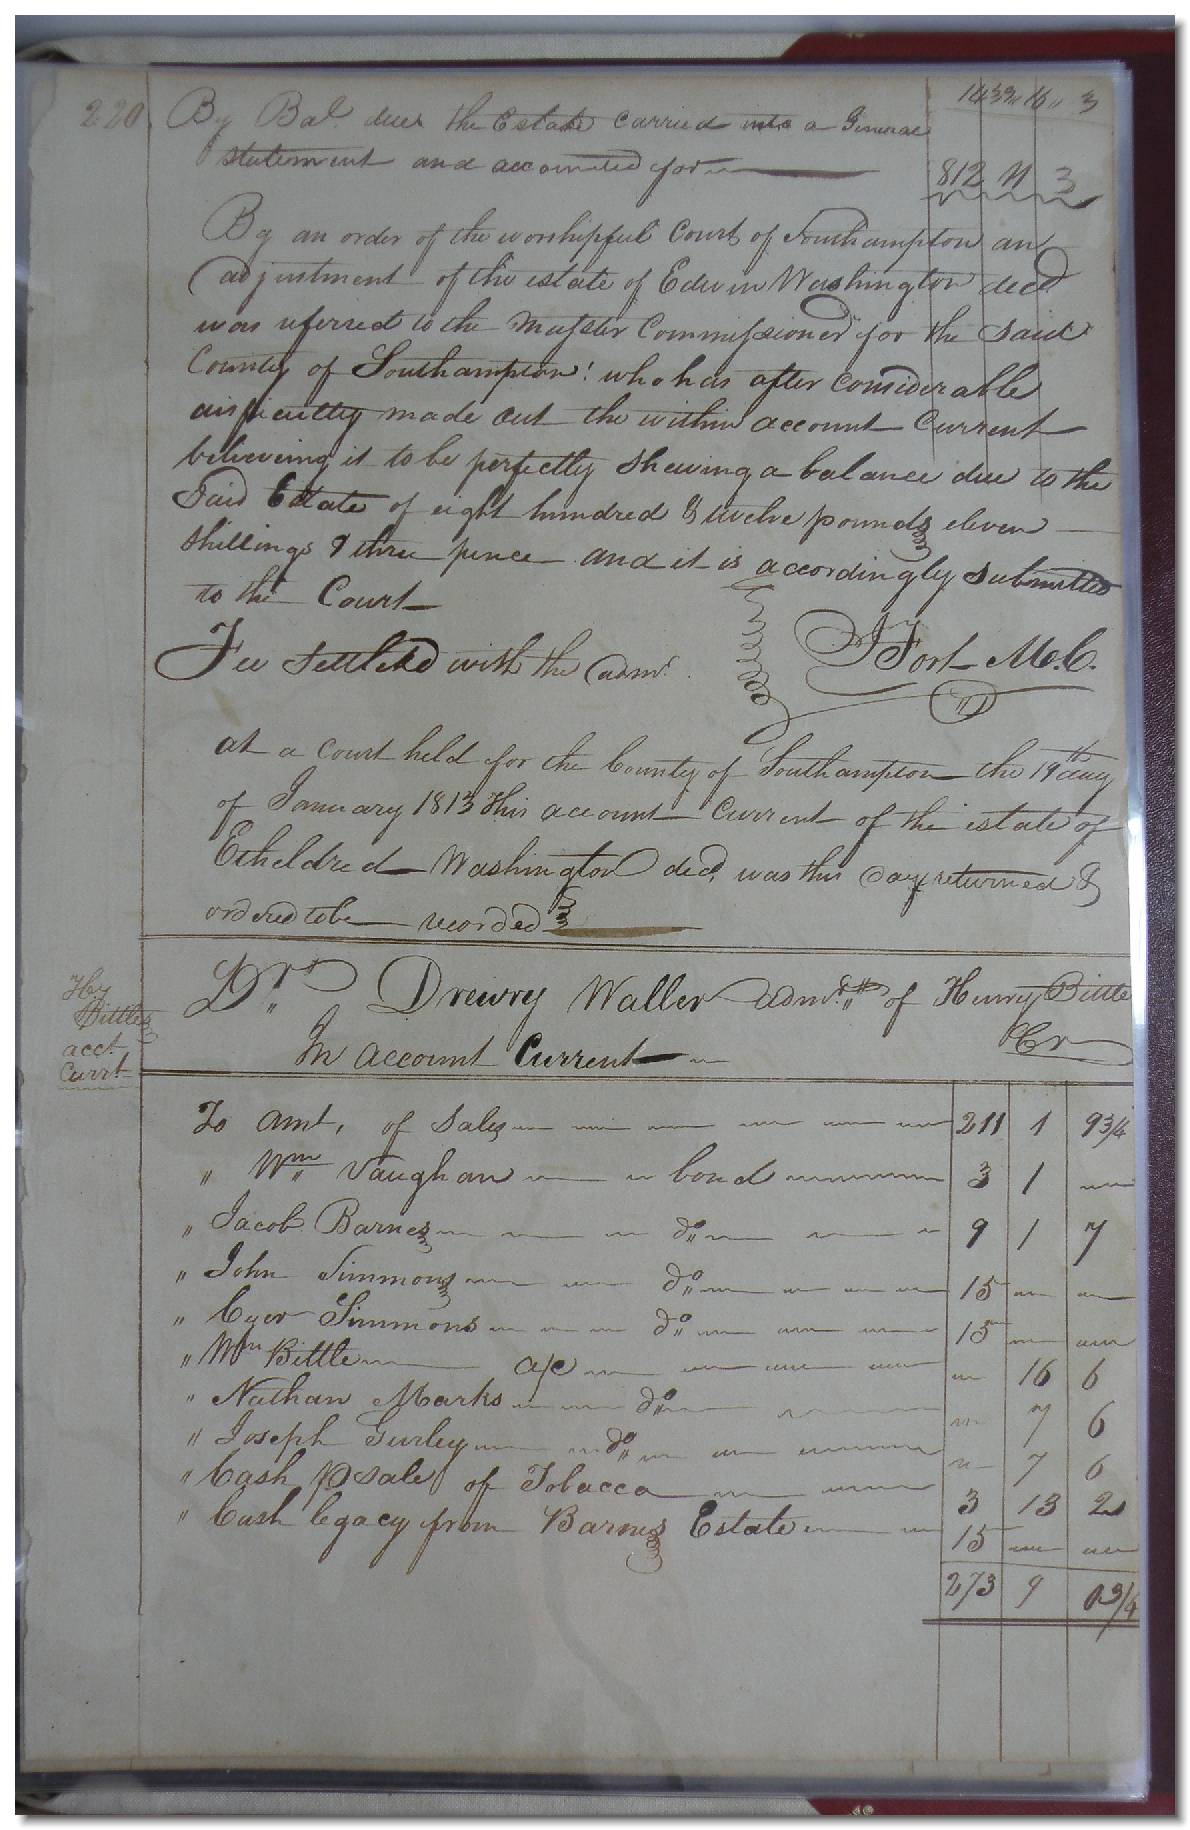 220
1433 " 16 " 3
By Bal. due the Estate carried into a General
statement and accounted for
812 11 3
By an order of the worshipful Court of Southampton an
adjustment of the estate of Edwin Washington decd
was referred to the Master Commissioner for the said
County of Southampton: who has after considerable
difficultty made out the within account Current
believeing it to be perfectly shewing a balance due to the
Said Estate of eight hundred & twelve pounds eleven
shillings & three pence and it is accordingly submitted
to the Court
Fee settled with the admr.
J Fort M.C.
at a Court held for the County of Southampton the 19th day
of January 1813 This account Current of the estate of
Etheldred Washington decd. was this day returned &
ordered to be recorded
Hy
Bittles
acct.
Currt
Dr. Drewry Waller admr. of Henry Bittle
In account Current
Cr
To amt. of Sales 211 1 9 3/4
" Wm Vaughan bond 3 1
" Jacob Barnes do 9 1 7
" John Simmons do 15
" Simmons do 15
" Wm Bittle a/c 16 6
" Nathan Marks do 7 6
" Joseph Gurley do 7 6
" Cash p sale of Tobacco 3 13 2
" Cash legacy from Barnes Estate 15
273 9 0 3/4